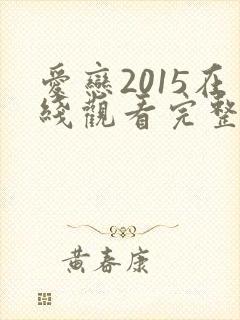 愛戀2015在
綫觀看完整
黃春康